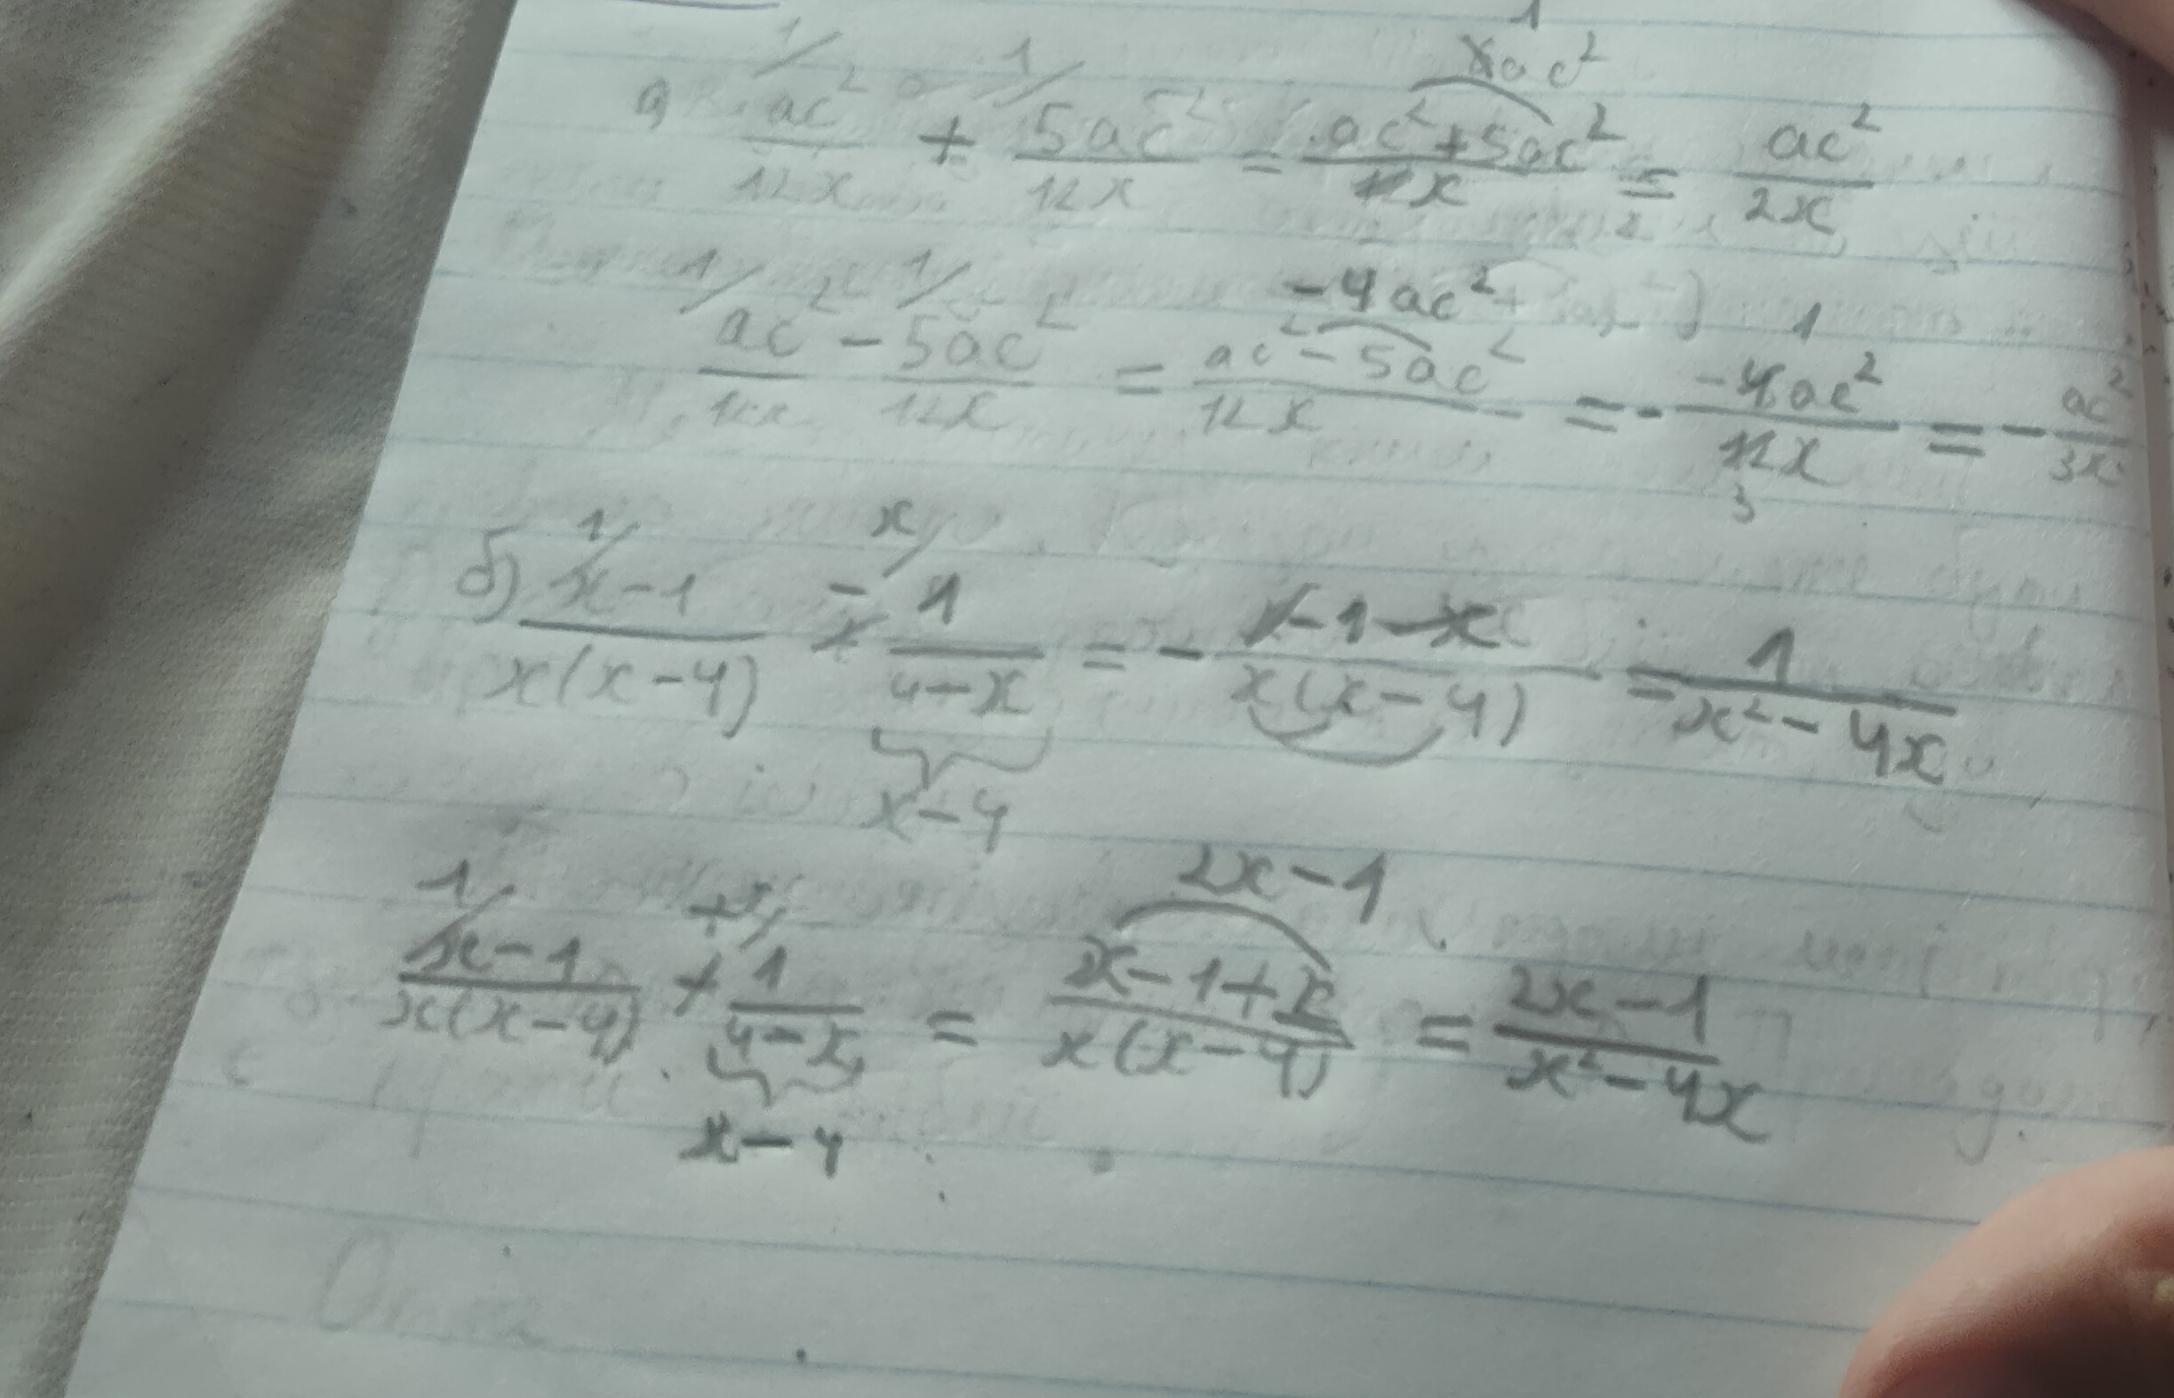 1
6ac²
1/ 1/
а) ac²/12x + 5ac²/12x = ac²+5ac²/12x = ac²/2x
2
-4ac²
1/ 1/ 1
ac²/12x - 5ac²/12x = ac²-5ac²/12x = - -4ac²/12x = - ac²/3x
3
1/ x/
б) x-1/x(x-4) - 1/4-x = - x-1-x/x(x-4) = 1/x²-4x
x-4
2x-1
1/ +x/
x-1/x(x-4) + 1/4-x = x-1+x/x(x-4) = 2x-1/x²-4x
x-4